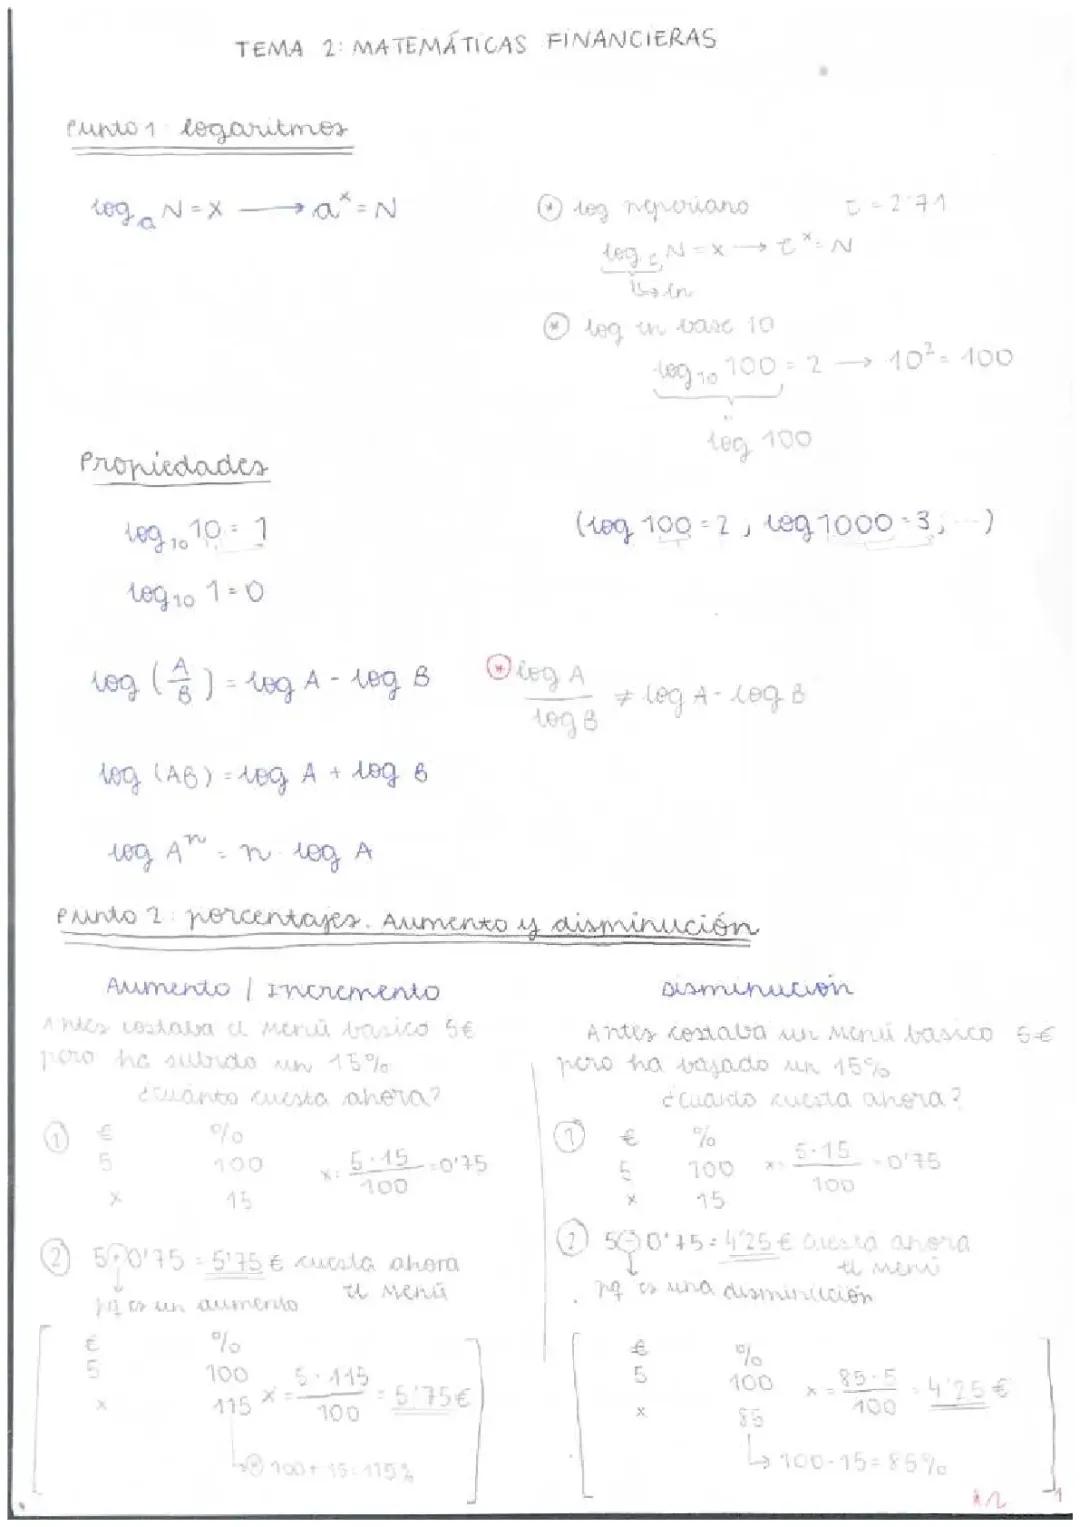 TEMA 2: MATEMÁTICAS FINANCIERAS
Punto 1: logaritmos
log_a N = x → a^x = N
* log neperiano e = 2'71
log_e N = x → e^x = N
↳ ln
* log en base 10
log_10 100 = 2 → 10^2 = 100
log 100
Propiedades
log_10 10 = 1 (log 100 = 2, log 1000 = 3, ...)
log_10 1 = 0
log (A/B) = log A - log B
* log A / log B ≠ log A - log B
log (AB) = log A + log B
log A^n = n · log A
Punto 2: porcentajes. Aumento y disminución
Aumento / Incremento
Antes costaba el menú basico 5€
pero ha subido un 15%
¿cuánto cuesta ahora?
① € %
5 100 x = 5·15/100 = 0'75
x 15
② 5 + 0'75 = 5'75 € cuesta ahora
el menú
pq es un aumento
€ %
5 100 x = 5·115/100 = 5'75€
x 115
↳ * 100 + 15 = 115%
Disminución
Antes costaba un menú basico 5€
pero ha bajado un 15%
¿cuanto cuesta ahora?
① € %
5 100 x = 5·15/100 = 0'75
x 15
② 5 - 0'75 = 4'25 € cuesta ahora
el menú
pq es una disminución
€ %
5 100 x = 85·5/100 = 4'25 €
x 85
↳ 100 - 15 = 85%
1